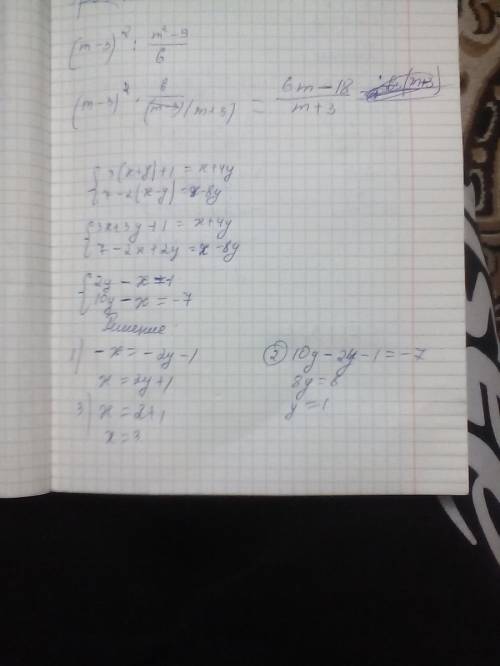 (m-3)² : m²-9/6
(m-3)² · 6/(m-3)(m+3) = 6m-18/m+3
{3(x+y)+1 = x+4y
7-2(x-y) = x-8y
{3x+3y+1 = x+4y
7-2x+2y = x-8y
{2y-x=1
10y-x=-7
Решение
1) -x=-2y-1
x=2y+1
② 10y-2y-1=-7
8y=6
y=1
3) x=2+1
x=3